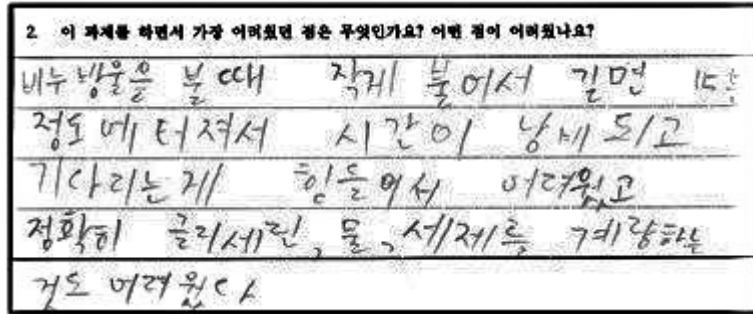 2 이 과제를 하면서 가장 어려웠던 점은 무엇인가요? 어떤 점이 어려웠나요?
비누방울을 불 때 작게 불어서 길면 15초
정도에 터져서 시간이 낭비되고
기다리는게 힘들어서 어려웠고
정확히 글리세린, 물, 세제를 계량하는
것도 어려웠다